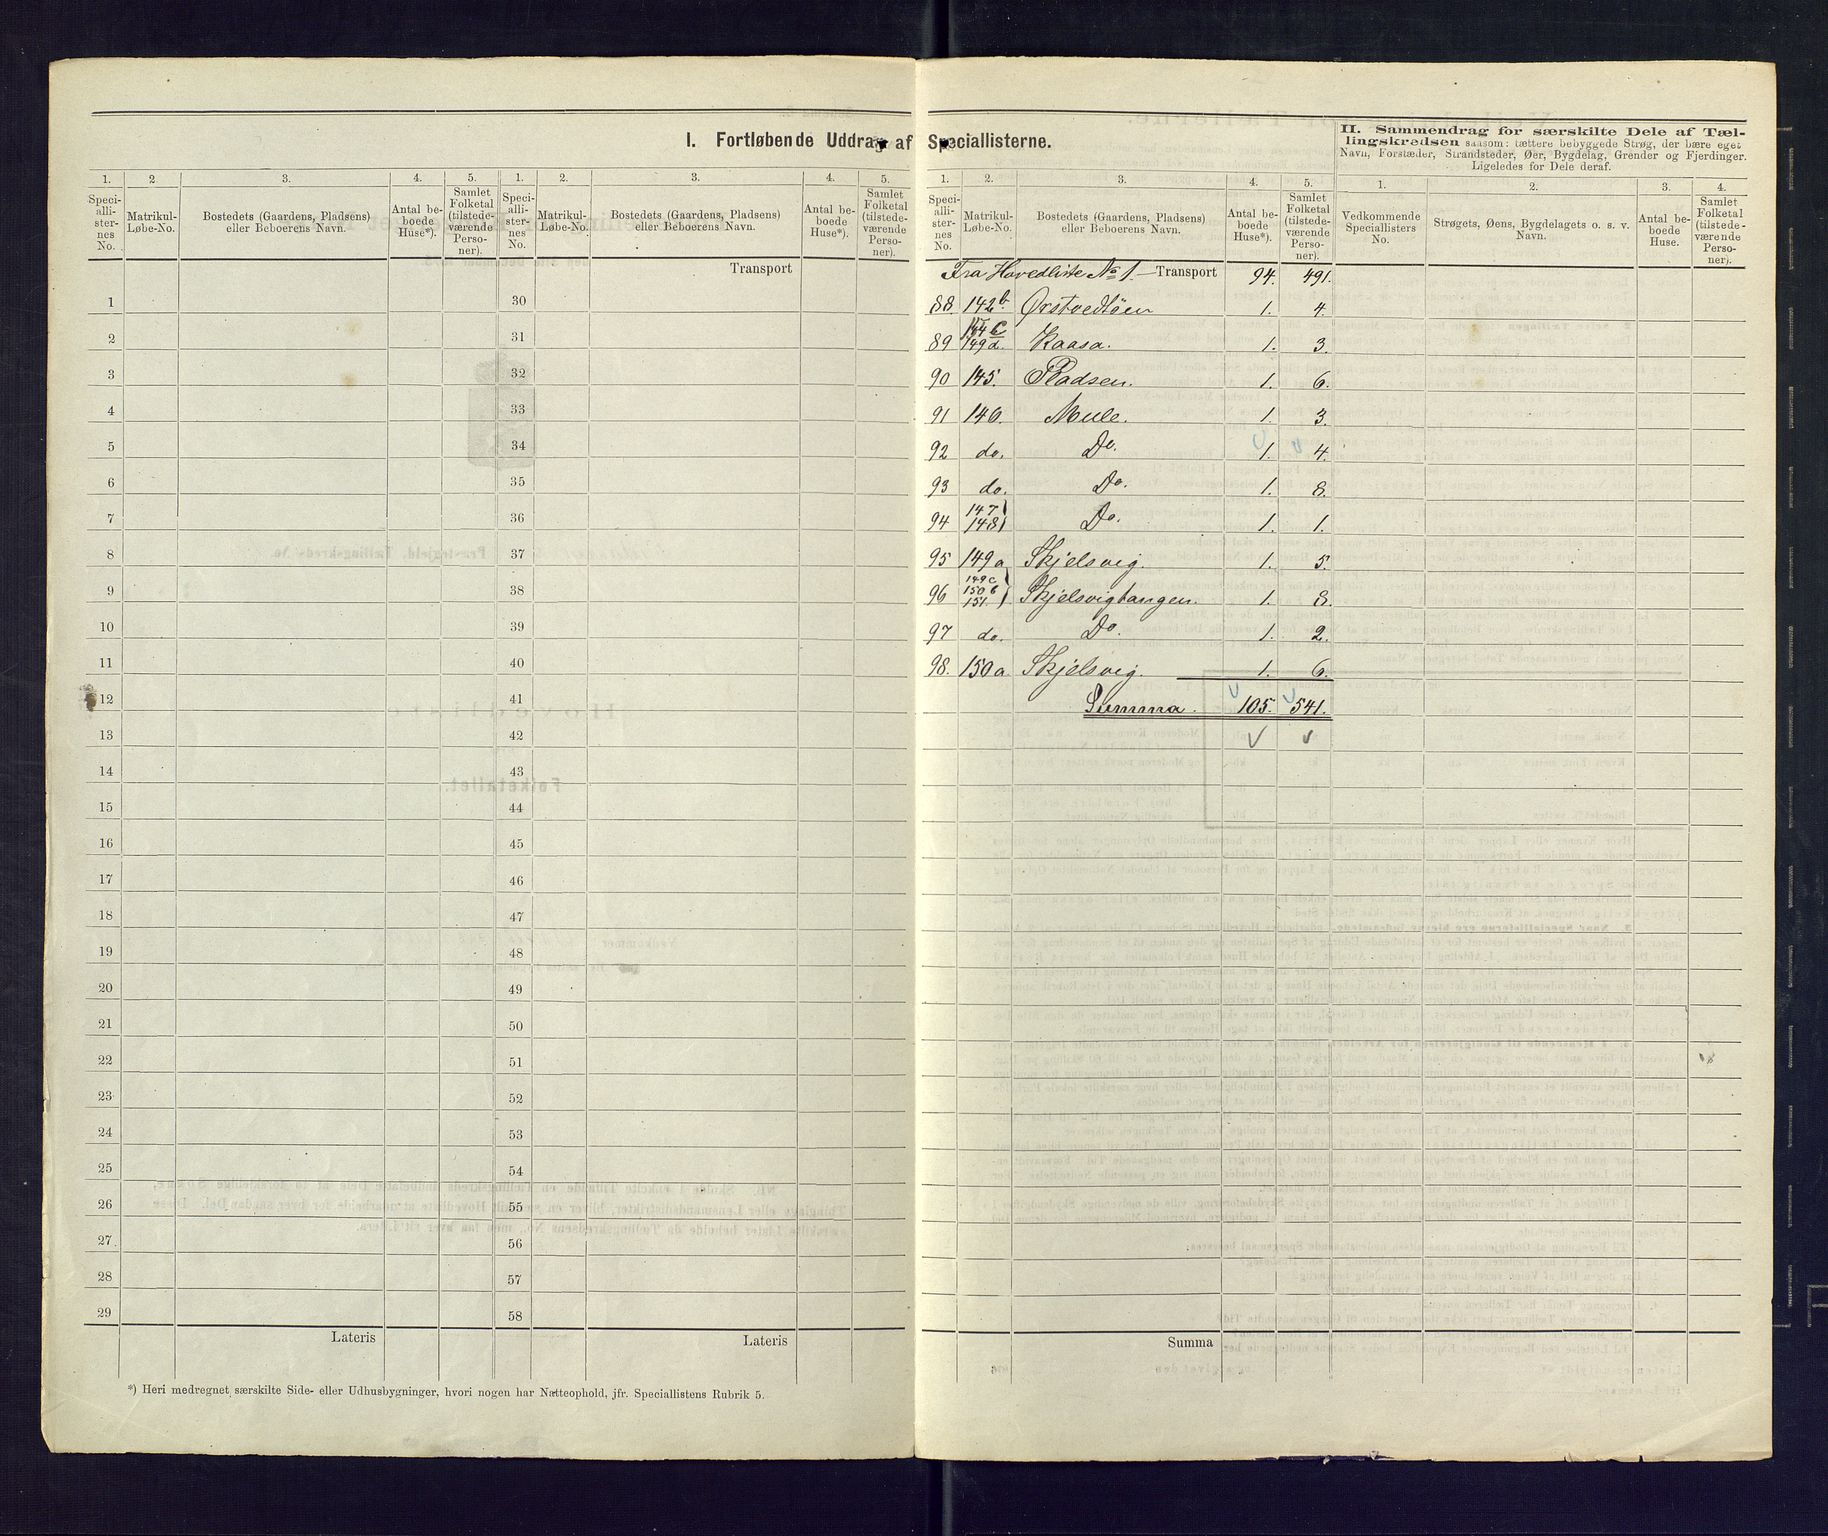 I. Fortløbende Uddrag af Speciallisterne.
II. Sammendrag for særskilte Dele af Tæl-
lingskredsen saasom: tættere bebyggede Strøg, der bære eget
Navn, Forstæder, Strandsteder, Øer, Bygdelag, Grender og Fjerdinger.
Ligeledes for Dele deraf.
1. 2. 3. 4. 5. 1. 2. 3. 4. 5.
Speci-alli-ster-nes No. Matrikul-Løbe-No. Bostedets (Gaardens, Pladsens) eller Beboerens Navn. Antal be-boede Huse*). Samlet Folketal (tilstede-værende Perso-ner). Speci-alli-ster-nes No. Matrikul-Løbe-No. Bostedets (Gaardens, Pladsens) eller Beboerens Navn. Antal be-boede Huse*). Samlet Folketal (tilstede-værende Perso-ner).
Transport
1 30
2 31
3 32
4 33
5 34
6 35
7 36
8 37
9 38
10 39
11 40
12 41
13 42
14 43
15 44
16 45
17 46
18 47
19 48
20 49
21 50
22 51
23 52
24 53
25 54
26 55
27 56
28 57
29 58
Lateris Lateris
*) Heri medregnet særskilte Side- eller Udhusbygninger, hvori nogen har Natteophold, jfr. Speciallistens Rubrik 5.
1. 2. 3. 4. 5. 1. 2. 3. 4.
Speci-alli-ster-nes No. Matrikul-Løbe-No. Bostedets (Gaardens, Pladsens) eller Beboerens Navn. Antal be-boede Huse*). Samlet Folketal (tilstede-værende Perso-ner). Vedkommende Speciallisters No. Strøgets, Øens, Bygdelagets o. s. v. Navn. Antal be-boede Huse. Samlet Folketal (tilstede-værende Perso-ner).
Fra Hovedliste No 1 Transport 94. 491.
88 142b. Ørstvedtøen 1. 4.
89 144c 149d. Kaasa. 1. 3.
90 145. Pladsen. 1. 6.
91 146. Mule. 1. 3.
92 do. Do. 1. 4.
93 do. Do. 1. 8.
94 147 148 Do. 1. 1.
95 149a Skjelsvig. 1. 5.
96 149c 150b 151. Skjelsvigtangen. 1. 8.
97 do. Do. 1. 2.
98. 150a. Skjelsvig. 1. 6.
Summa. 105. 541.
Summa